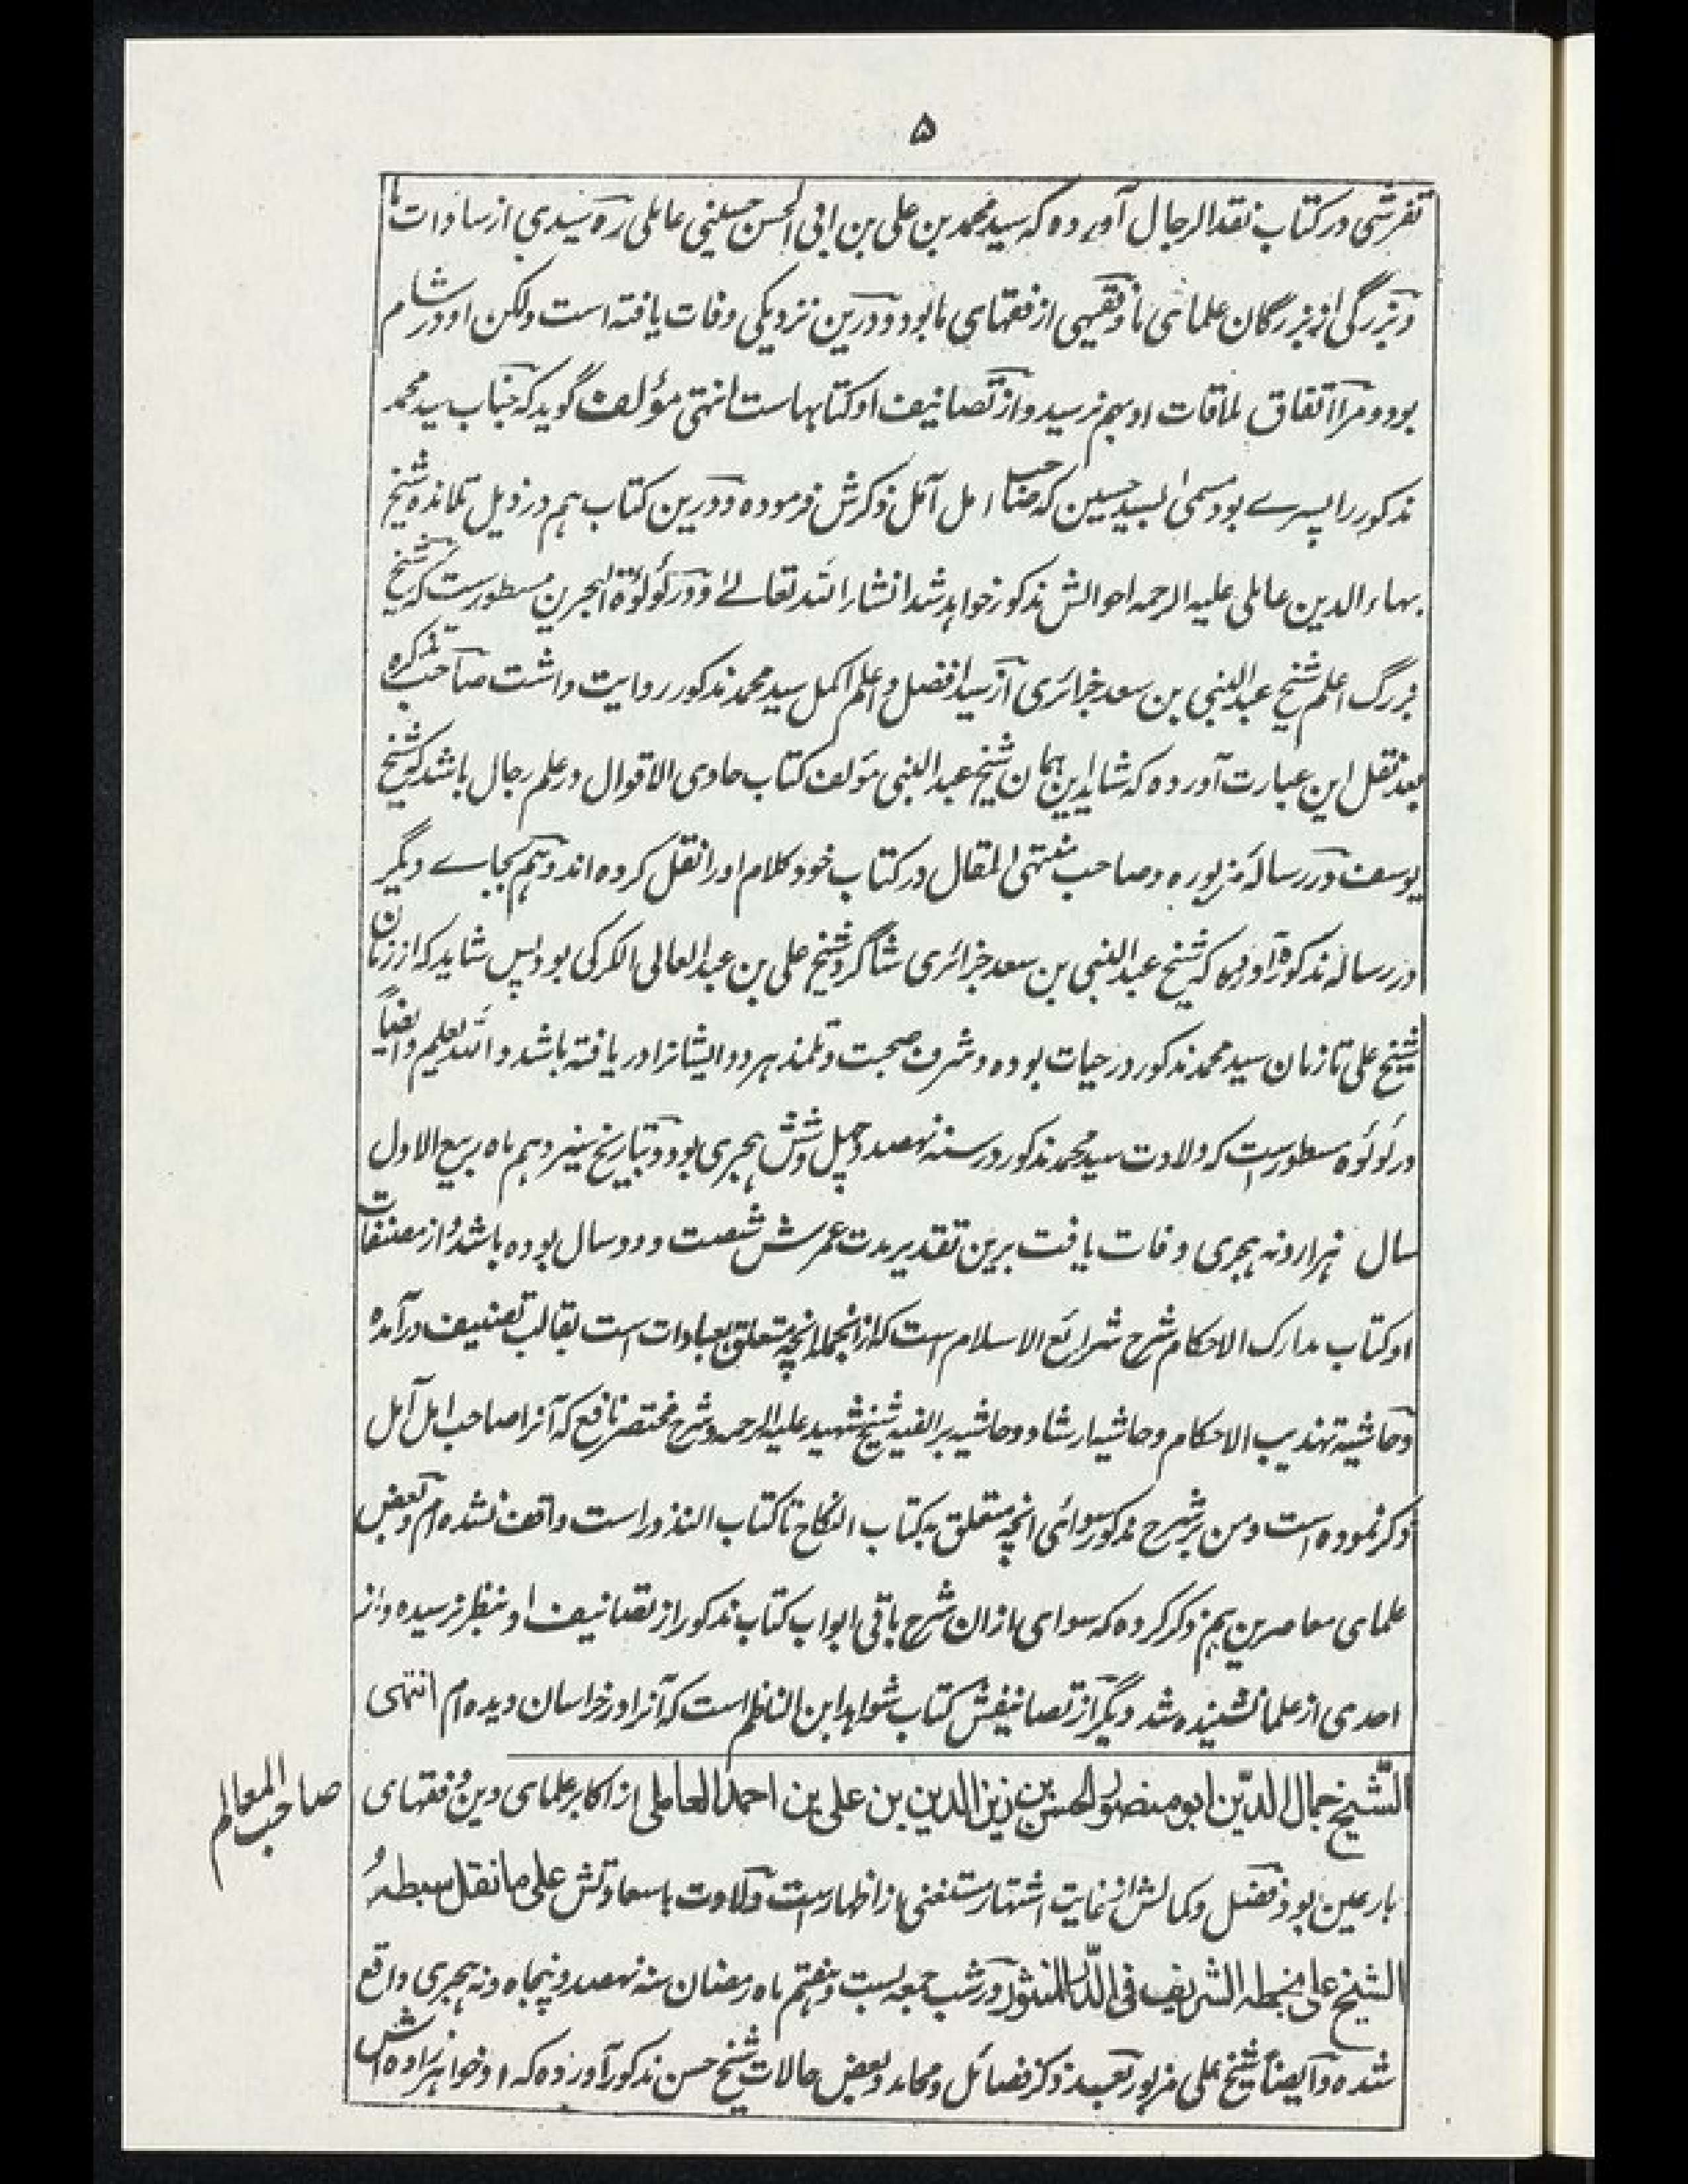 ۵
تفرشی در کتاب نقد الرجال آورده که سید محمد بن علی بن ابی الحسن حسینی عاملی ره سیدی از سادات ما
و بزرگی از بزرگان علمای ما و فقیهی از فقهای ما بود و درین نزدیکی وفات یافته است ولکن او در شام
بود و مرا اتفاق ملاقات او بهم نرسید و از تصانیف او کتابهاست انتهی مؤلف گوید که جناب سید محمد
مذکور را پسرے بود مسمی بسید حسین که صاحب امل آمل ذکرش فرموده و درین کتاب هم در ذیل تلامذه شیخ
بهاء الدین عاملی علیه الرحمه احوالش مذکور خواهد شد انشاء الله تعالے و در لؤلؤة البحرین مسطورست که شیخ
بزرگ اعلم شیخ عبد النبی بن سعد جزائری از سید افضل و اعلم اکمل سید محمد مذکور روایت داشت صاحب تذکره
بعد نقل این عبارت آورده که شاید این همان شیخ عبد النبی مؤلف کتاب حاوی الاقوال در علم رجال باشد که شیخ
یوسف در رسالهٔ مزبوره و صاحب منتهی المقال در کتاب خود کلام او را نقل کرده اند و هم بجاے دیگر
در رساله مذکوره آورده که شیخ عبد النبی بن سعد جزائری شاگرد شیخ علی بن عبد العالی الکرکی بود پس شاید که از زمان
شیخ علی تا زمان سید محمد مذکور در حیات بوده و شرف صحبت و تلمذ هر دو ایشانرا دریافته باشد و الله یعلم و ایضاً
در لؤلؤه مسطورست که ولادت سید محمد مذکور در سنه نهصد و چهل و شش هجری بود و بتاریخ سیزدهم ماه ربیع الاول
سال هزار و نه هجری وفات یافت برین تقدیر مدت عمرش شصت و دو سال بوده باشد و از مصنفات
او کتاب مدارک الاحکام شرح شرائع الاسلام است که از انجمله انچه متعلق بعبادات است بقالب تصنیف درآمده
و حاشیه تهذیب الاحکام و حاشیه ارشاد و حاشیه بر الفیه شیخ شهید علیه الرحمه و شرح مختصر نافع که آنرا صاحب امل آمل
ذکر نموده است و من بر شرح مذکور سوائی انچه متعلق به کتاب النکاح تا کتاب النذور است واقف نشده ام و بعض
علمای معاصرین هم ذکر کرده که سوای ازان شرح باقی ابواب کتاب مذکور از تصانیف او بنظر نرسیده و از
احدی از علما نشنیده شد و دیگر از تصانیفش کتاب شواهد ابن الناظم است که آنرا در خراسان دیده ام انتهی
الشّیخ جمال الدّین ابو منصور الحسن بن زین الدین بن علی بن احمد العاملی از اکابر علمای دین و فقهای
صاحب المعالم
بارعین بود فضل و کمالش از غایت اشتهار مستغنی از اظهارست ولادت باسعادتش علی ما نقل سبطهُ
الشیخ علی بخطه الشریف فی الدّر المنثور در شب جمعه بست و هفتم ماه رمضان سنه نهصد و پنجاه و نه هجری واقع
شده و ایضاً شیخ علی مزبور بعید ذکر فضائل و محامد و بعض حالات شیخ حسن مذکور آورده که او خواهرزاده اش